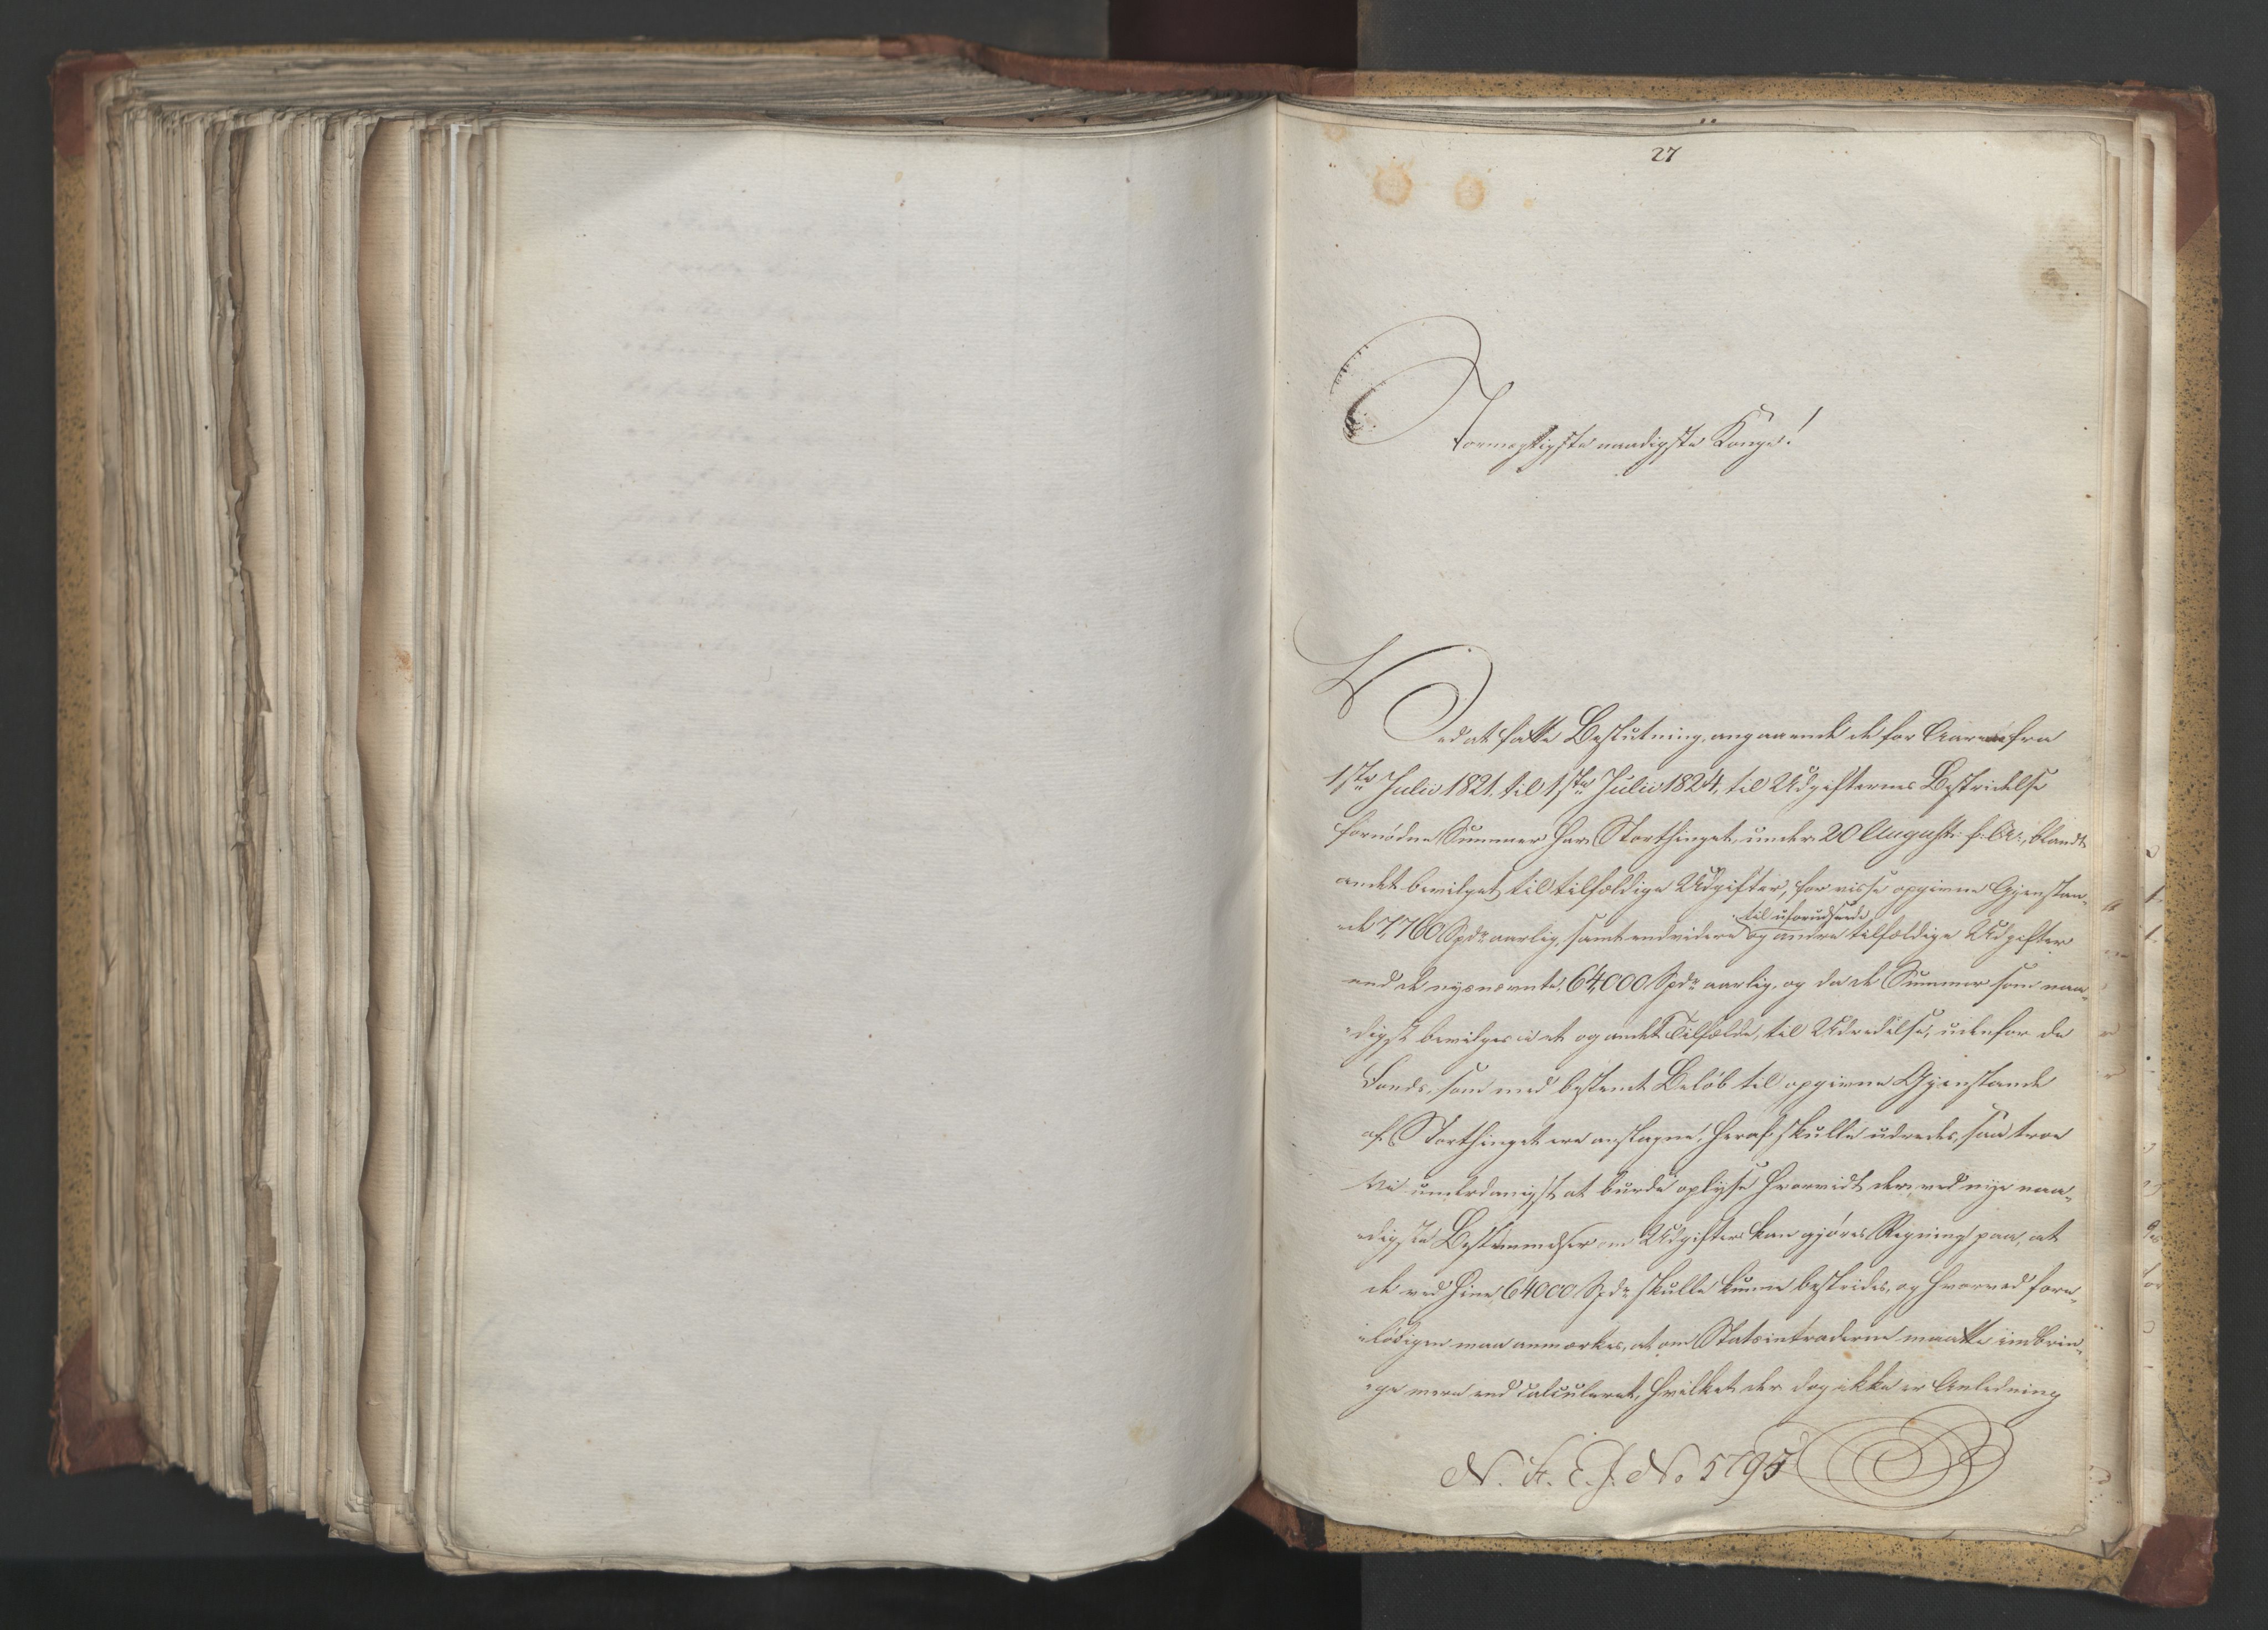 27
Stormægtigste naadigste Konge!
Ved at fatte Beslutning angaaende de for Aarene fra
1ste Julii 1821 til 1ste Julii 1824, til Udgifternes Bestridelse
fornødne Summer har Storthinget under 20 August f. A., blandt
andet bevilget til tilfældige Udgifter, for visse opgivne Gjenstan-
-de 7,760 Spdr aarlig, samt endvidere og andre tilfældige Udgifter
til uforudseede
end de nysnævnte, 64,000 Spdr aarlig, og da de Summer som naa-
-digst bevilges i et og andet Tilfælde, til Udredelse, udenfor de
Fonds, som med bestemt Beløb til opgivne Gjenstande
af Storthinget ere anslagne, heraf skulle udredes, saa troe
Vi underdanigst at burde oplyse hvorvidt der, ved nye naa-
-digste Bestemmelser om Udgifter kan gjøres Regning paa, at
de ved hine 64000 Spdr skulle kunne bestrides, og hvorved fore-
-løbigen maa anmærkes, at om Statsintraderne maatte indbrin-
-ge mere end calculeret, hvilket der dog ikke er Anledning
N. F. E. J. No 5795